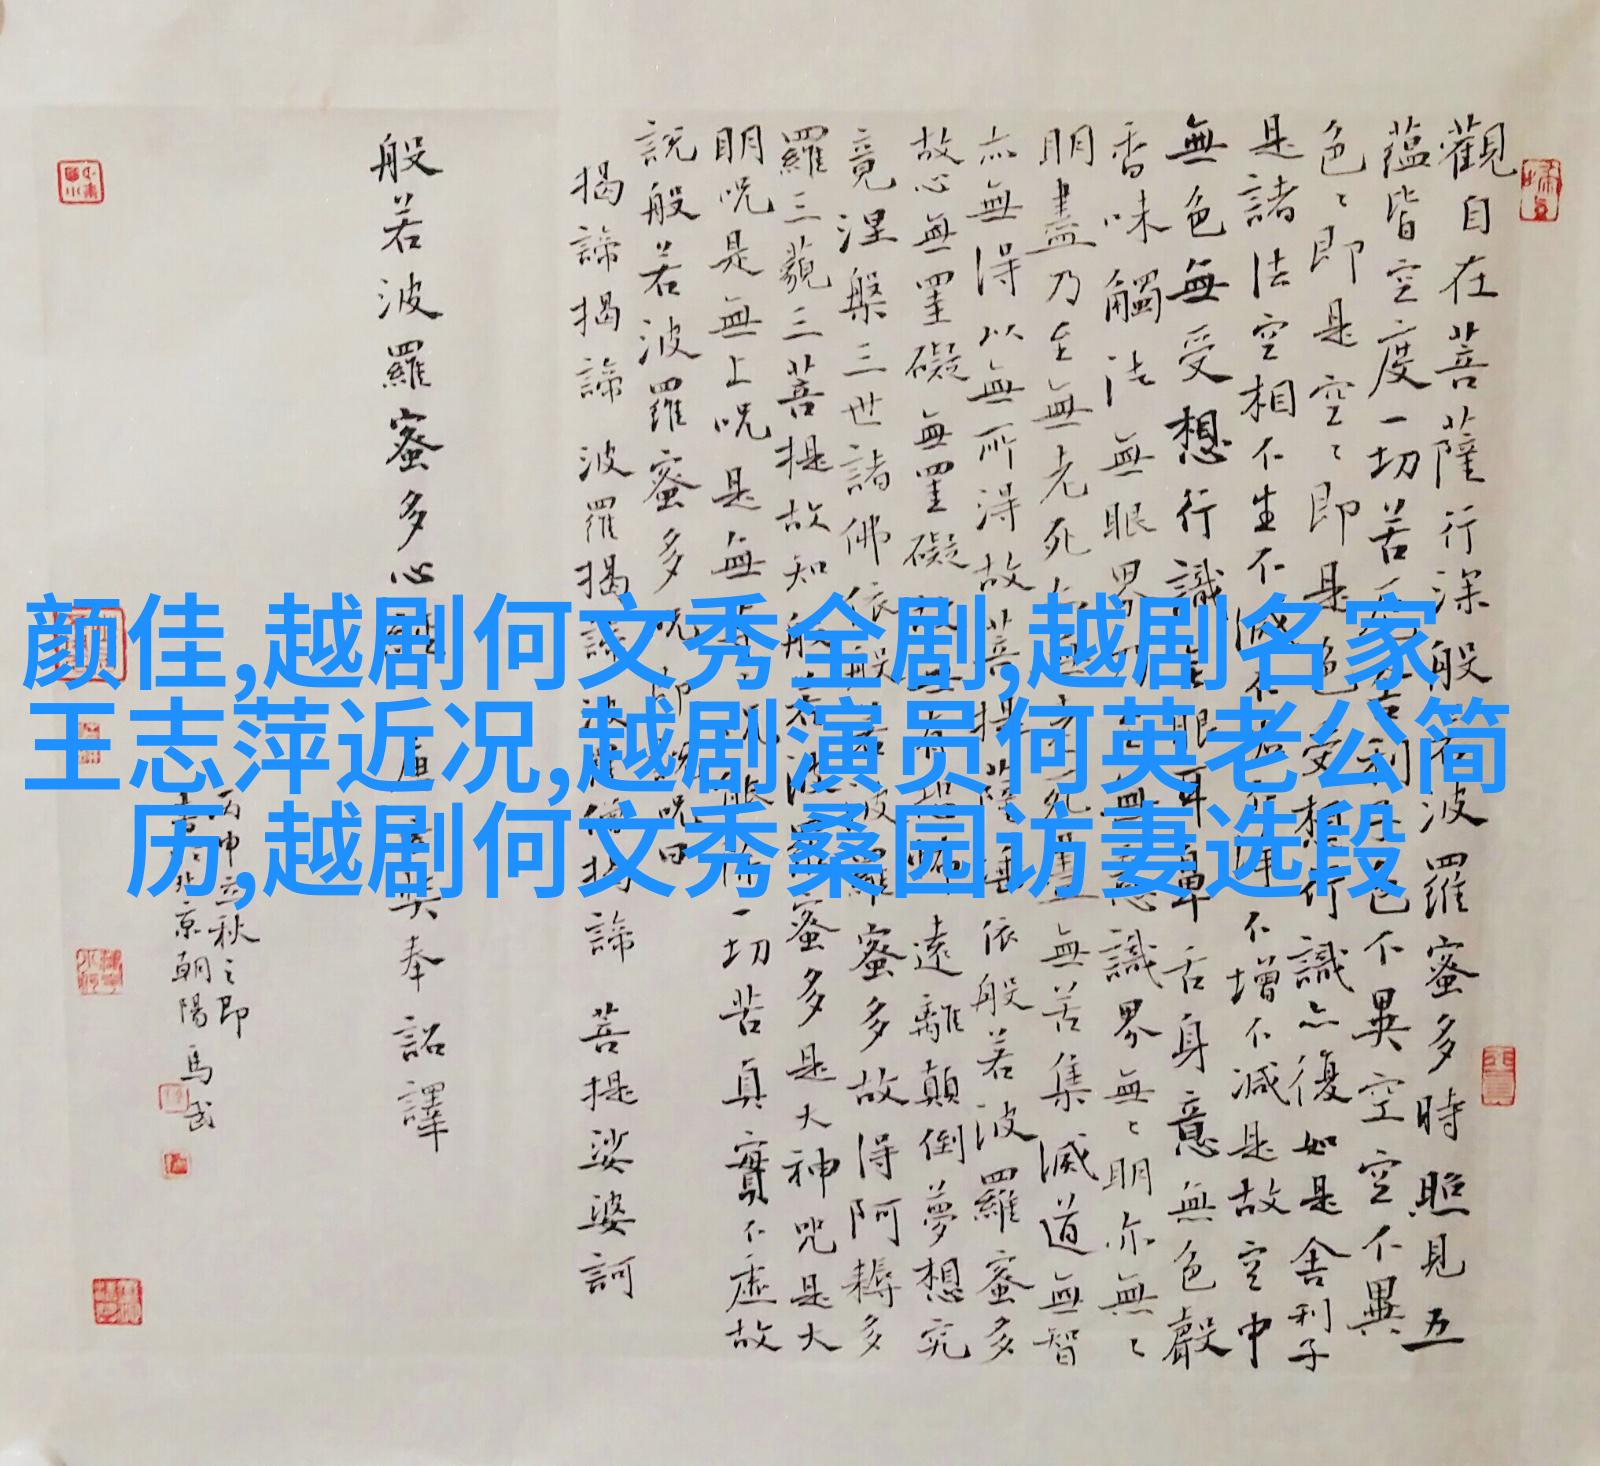 颜佳,越剧何文秀全剧,越剧名家
王志萍近况,越剧演员何英老公简
历,越剧何文秀桑园访妻选段
觀自在菩薩行深般若波羅蜜多時照見五
蘊皆空度一切苦厄舍利子色不異空空不異
色〻即是空〻即是色受想行識亦復如是舍利子
是諸法空相不生不滅不垢不淨不增不減是故空中
無色無受想行識無眼耳鼻舌身意無色聲
香味觸法無眼界乃至無意識界無〻明亦無〻
明盡乃至無老死亦無老死盡無苦集滅道無智
亦無得以無所得故菩提薩埵依般若波羅蜜多
故心無罣礙無罣礙故無有恐怖遠離顛倒夢想究
竟涅槃三世諸佛依般若波羅蜜多故得阿耨多
羅三藐三菩提故知般若波羅蜜多是大神咒是大
明咒是無上咒是無等等咒能除一切苦真實不虛故
說般若波羅蜜多咒即說咒曰
揭諦揭諦波羅揭諦波羅僧揭諦菩提娑婆訶
般若波羅蜜多心經唐玄奘奉詔譯
丙申立秋之即
書北京朝陽馬